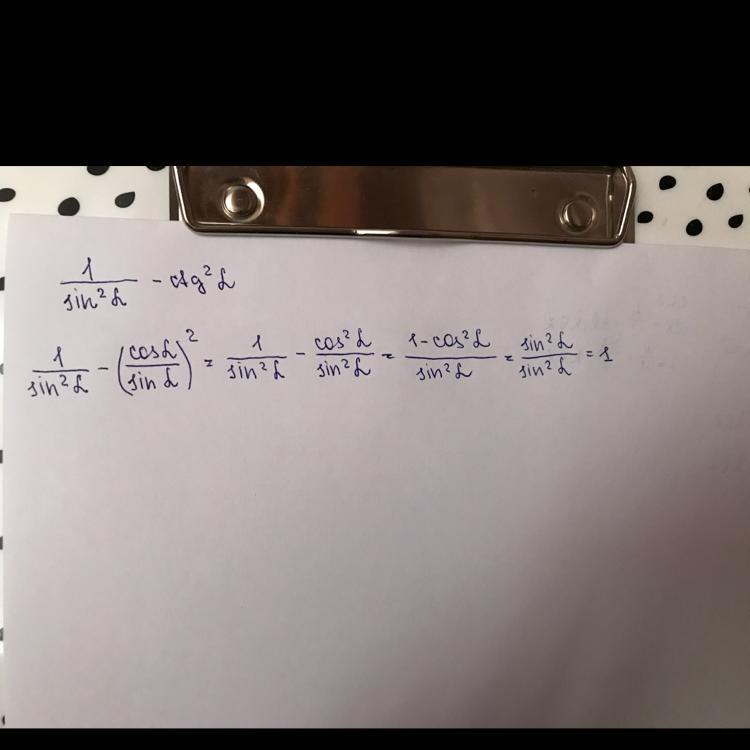 1/sin²α - ctg²α
1/sin²α - (cosα/sinα)² = 1/sin²α - cos²α/sin²α = 1-cos²α/sin²α = sin²α/sin²α = 1